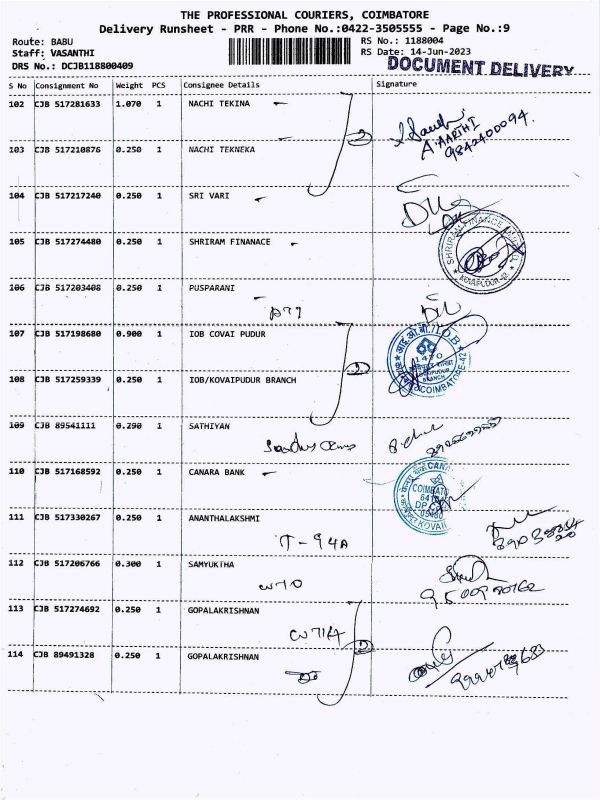 THE PROFESSIONAL COURIERS, COIMBATORE
Delivery Runsheet - PRR - Phone No.:0422-3505555 - Page No.:9
Route: BABU RS No.: 1188004
Staff: VASANTHI RS Date: 14-Jun-2023
DRS No.: DCJB118800409 DOCUMENT DELIVERY
S No Consignment No Weight PCS Consignee Details Signature
102 CJB 517281633 1.070 1 NACHI TEKINA
2
A. AARTHI
9842400094.
103 CJB 517210876 0.250 1 NACHI TEKNEKA
104 CJB 517217240 0.250 1 SRI VARI
105 CJB 517274480 0.250 1 SHRIRAM FINANACE
SHRIRAM FINANCE
KOVAIPUDUR-42
106 CJB 517203408 0.250 1 PUSPARANI
107 CJB 517198680 0.900 1 IOB COVAI PUDUR
2
आई.ओ.बी./I.O.B.
1470
KOVAIPUDUR
BRANCH
COIMBATORE-42
108 CJB 517259339 0.250 1 IOB/KOVAIPUDUR BRANCH
109 CJB 89541111 0.290 1 SATHIYAN
110 CJB 517168592 0.250 1 CANARA BANK
111 CJB 517330267 0.250 1 ANANTHALAKSHMI
T-94A
112 CJB 517206766 0.300 1 SAMYUKTHA
113 CJB 517274692 0.250 1 GOPALAKRISHNAN
2
114 CJB 89491328 0.250 1 GOPALAKRISHNAN